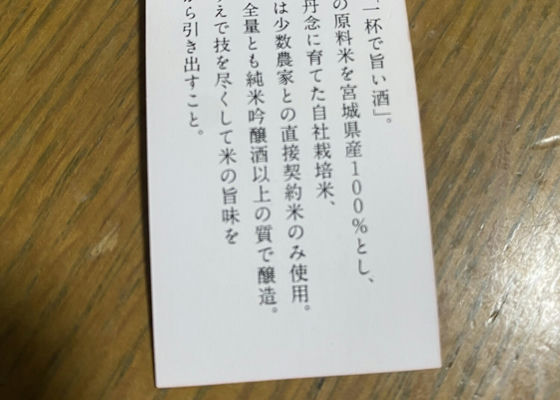 一杯で旨い酒」。
の原料米を宮城県産100%とし、
丹念に育てた自社栽培米、
は少数農家との直接契約米のみ使用。
全量とも純米吟醸酒以上の質で醸造。
えで技を尽くして米の旨味を
から引き出すこと。